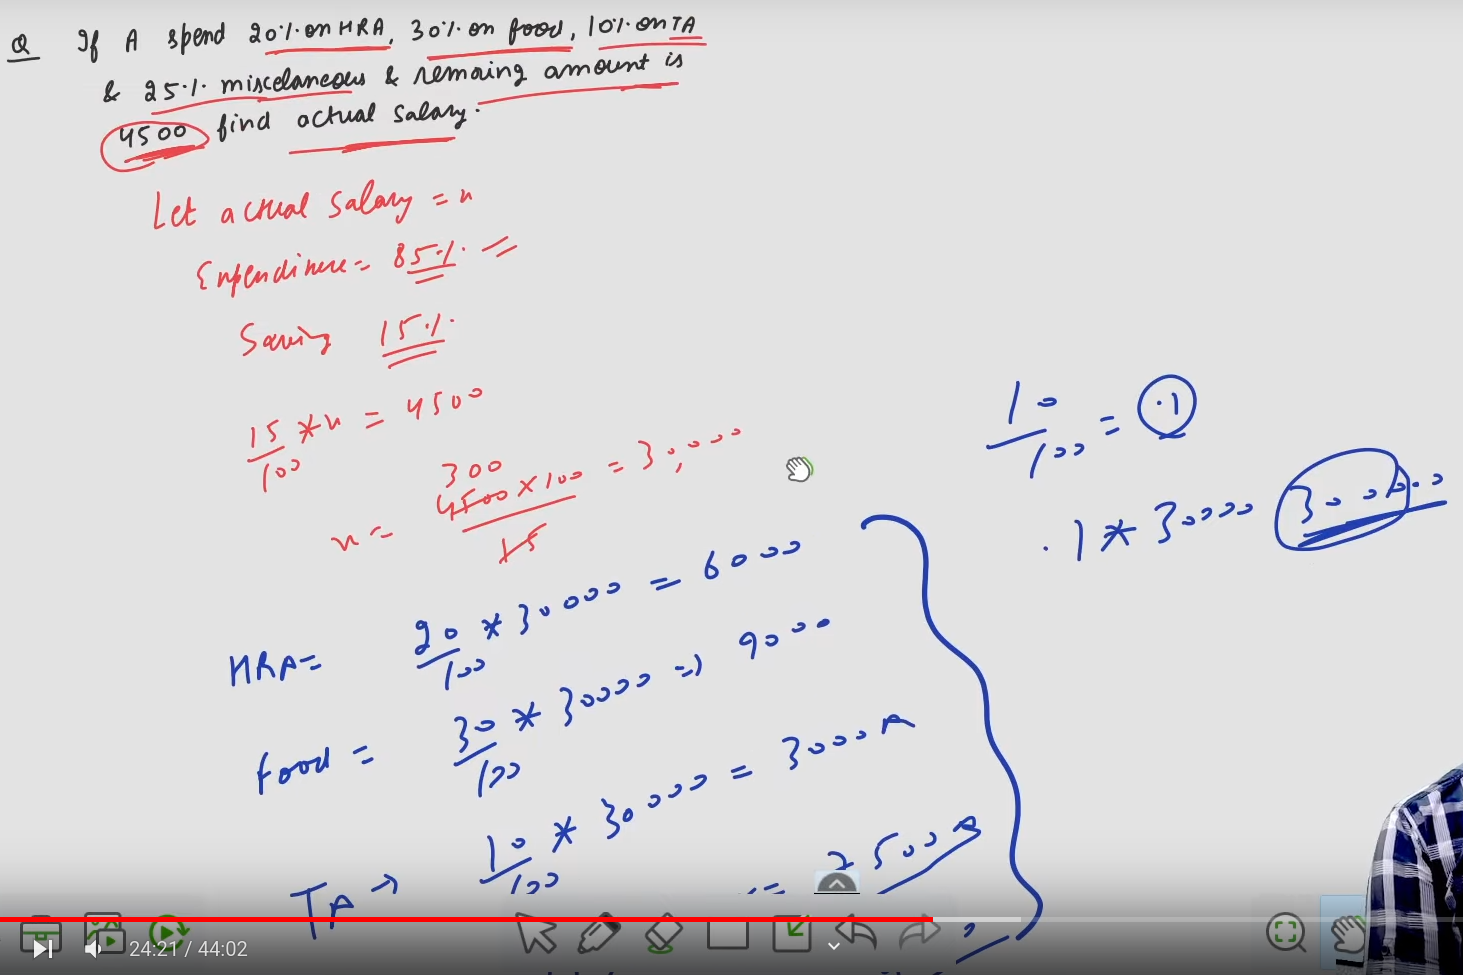 Q If A spend 20% on HRA, 30% on food, 10% on TA
& 25% miscelaneous & remaing amount is
4500 find actual salary.
Let actual salary = x
Expenditure = 85%
Saving 15%
15/100 * x = 4500
300
x = 4500 x 100 / 15 = 30,000
10/100 = .1
.1 * 30000 3000.00
HRA = 20/100 * 30000 = 6000
Food = 30/100 * 30000 => 9000
TA → 10/100 * 30000 = 3000
= 7500
24:21 / 44:02